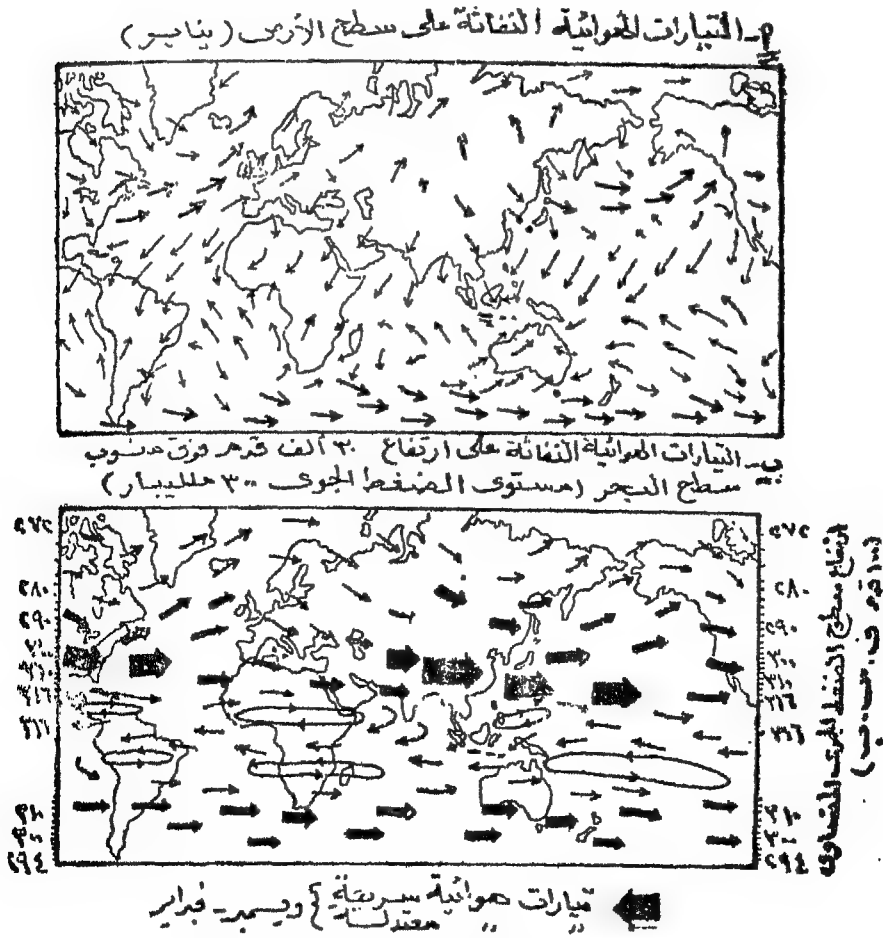 أ- التيارات الهوائية النفاثة على سطح الأرض (يناير)
ب- التيارات الهوائية النفاثة على ارتفاع ٣٠ ألف قدم فوق منسوب
سطح البحر (مستوى الضغط الجوى ٣٠٠ ملليبار)
٢٧٢
٢٨٠
٢٩٠
٣٠٠
٣١٠
٣١٦
٣١٦
٣١٠
٣٠٠
٢٩٤
٢٧٢
٢٨٠
٢٩٠
٣٠٠
٣١٠
٣١٦
٣١٦
٣١٠
٣٠٠
٢٩٤
ارتفاع سطوح الضغط الجوى المتساوى
تيارات هوائية سريعة } ديسمبر - فبراير
" " معتدلة